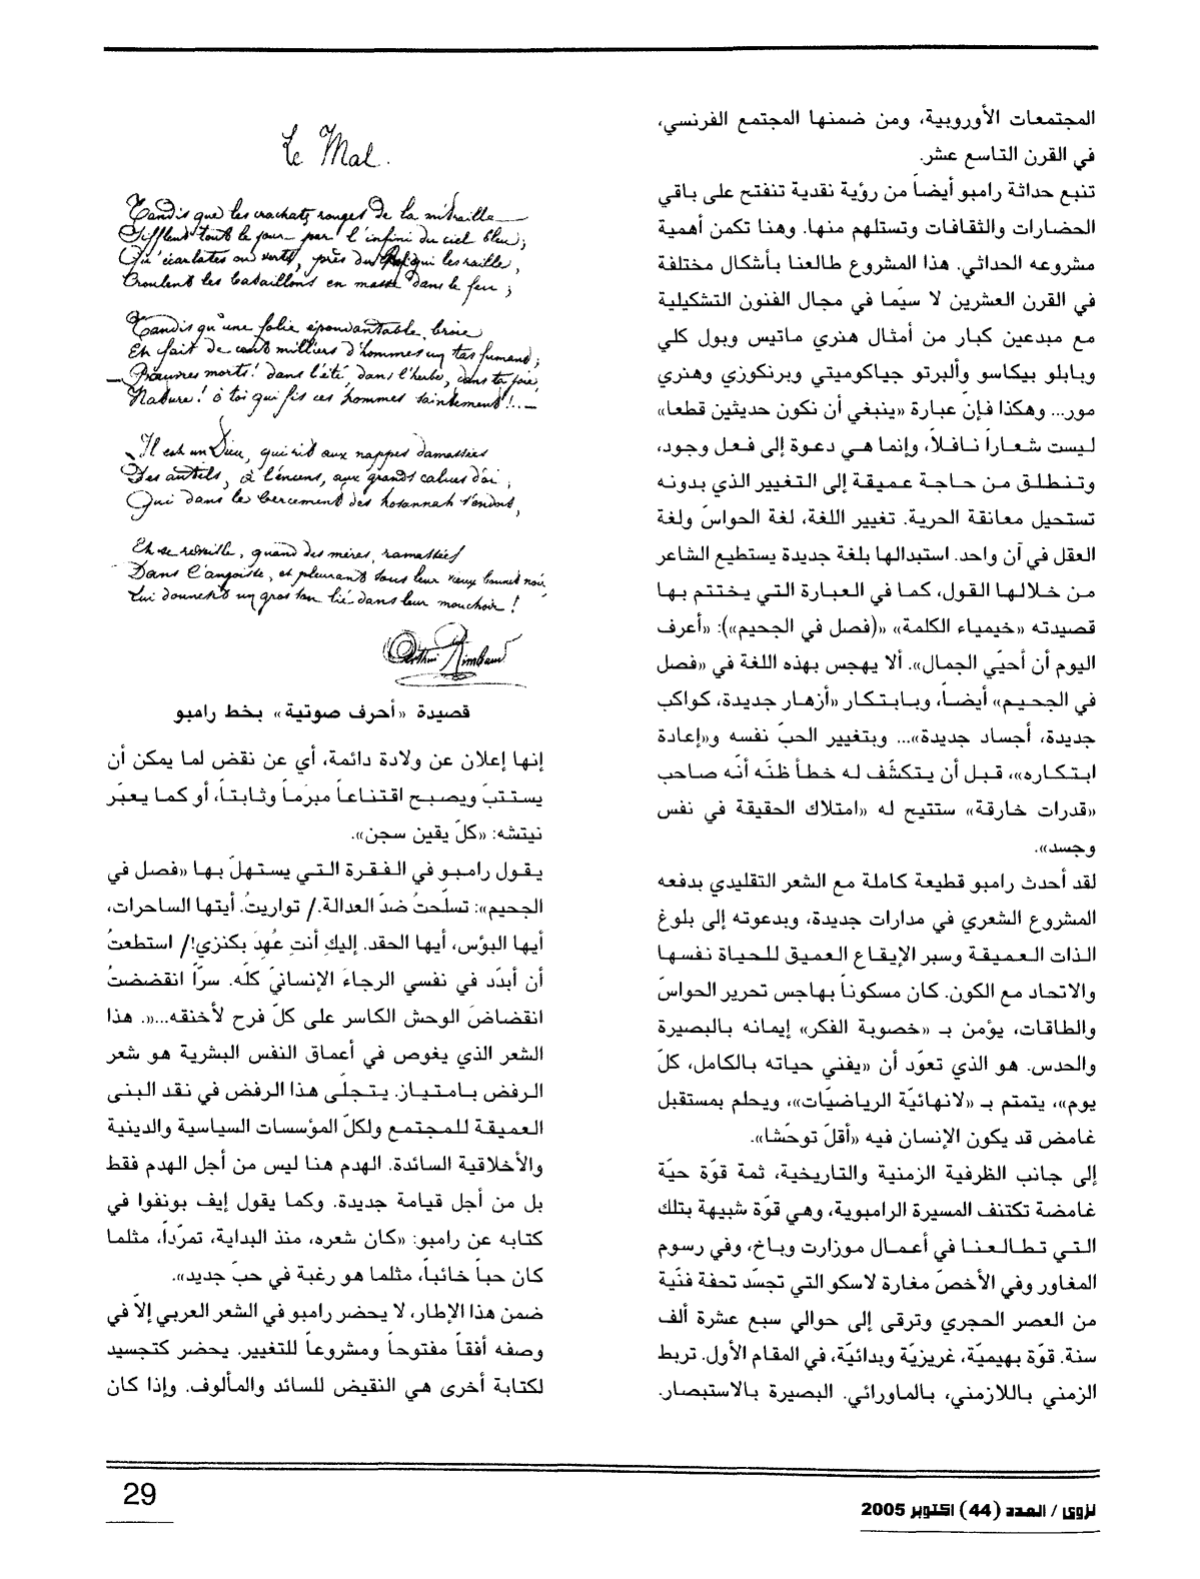 المجتمعات الأوروبية، ومن ضمنها المجتمع الفرنسي،
في القرن التاسع عشر.
تنبع حداثة رامبو أيضاً من رؤية نقدية تنفتح على باقي
الحضارات والثقافات وتستلهم منها. وهنا تكمن أهمية
مشروعه الحداثي. هذا المشروع طالعنا بأشكال مختلفة
في القرن العشرين لا سيّما في مجال الفنون التشكيلية
مع مبدعين كبار من أمثال هنري ماتيس وبول كلي
وبابلو بيكاسو وألبرتو جياكوميتي وبرنكوزي وهنري
مور... وهكذا فإنّ عبارة «ينبغي أن نكون حديثين قطعا»
ليست شعاراً نافلاً، وإنما هي دعوة إلى فعل وجود،
وتنطلق من حاجة عميقة إلى التغيير الذي بدونه
تستحيل معانقة الحرية. تغيير اللغة، لغة الحواسّ ولغة
العقل في آن واحد. استبدالها بلغة جديدة يستطيع الشاعر
من خلالها القول، كما في العبارة التي يختتم بها
قصيدته «خيمياء الكلمة» «(فصل في الجحيم»): «أعرف
اليوم أن أحيّي الجمال». ألا يهجس بهذه اللغة في «فصل
في الجحيم» أيضاً، وبابتكار «أزهار جديدة، كواكب
جديدة، أجساد جديدة»... وبتغيير الحبّ نفسه و«إعادة
ابتكاره»، قبل أن يتكشّف له خطأ ظنّه أنّه صاحب
«قدرات خارقة» ستتيح له «امتلاك الحقيقة في نفس
وجسد».
لقد أحدث رامبو قطيعة كاملة مع الشعر التقليدي بدفعه
المشروع الشعري في مدارات جديدة، وبدعوته إلى بلوغ
الذات العميقة وسبر الإيقاع العميق للحياة نفسها
والاتحاد مع الكون. كان مسكوناً بهاجس تحرير الحواسّ
والطاقات، يؤمن بـ «خصوبة الفكر» إيمانه بالبصيرة
والحدس. هو الذي تعوّد أن «يفني حياته بالكامل، كلّ
يوم»، يتمتم بـ «لانهائيّة الرياضيّات»، ويحلم بمستقبل
غامض قد يكون الإنسان فيه «أقلّ توحّشا».
إلى جانب الظرفية الزمنية والتاريخية، ثمة قوّة حيّة
غامضة تكتنف المسيرة الرامبوية، وهي قوّة شبيهة بتلك
التي تطالعنا في أعمال موزارت وباخ، وفي رسوم
المغاور وفي الأخصّ مغارة لاسكو التي تجسّد تحفة فنّية
من العصر الحجري وترقى إلى حوالي سبع عشرة ألف
سنة. قوّة بهيميّة، غريزيّة وبدائيّة، في المقام الأول. تربط
الزمني باللازمني، بالماورائي. البصيرة بالاستبصار.
Le Mal.
Tandis que les crachats rouges de la mitraille
Sifflent tout le jour par l'infini du ciel bleu;
Qu'écarlates ou verts, près du Roi qui les raille,
Croulent les bataillons en masse dans le feu;
Tandis qu'une folie épouvantable, broie
Et fait de cent milliers d'hommes un tas fumant;
— Pauvres morts! dans l'été, dans l'herbe, dans ta joie,
Nature! ô toi qui fis ces hommes saintement!.. —
– Il est un Dieu, qui rit aux nappes damassées
Des autels, à l'encens, aux grands calices d'or;
Qui dans le bercement des hosannah s'endort,
Et se réveille, quand des mères, ramassées
Dans l'angoisse, et pleurant sous leur vieux bonnet noir,
Lui donnent un gros sou lié dans leur mouchoir!
Arthur Rimbaud
قصيدة «أحرف صوتية» بخط رامبو
إنها إعلان عن ولادة دائمة، أي عن نقض لما يمكن أن
يستتبّ ويصبح اقتناعاً مبرَماً وثابتاً، أو كما يعبّر
نيتشه: «كلّ يقين سجن».
يقول رامبو في الفقرة التي يستهلّ بها «فصل في
الجحيم»: تسلّحتُ ضدّ العدالة./ تواريتُ. أيتها الساحرات،
أيها البؤس، أيها الحقد. إليكِ أنتِ عُهِدَ بكنزي!/ استطعتُ
أن أبدّد في نفسي الرجاءَ الإنسانيّ كلّه. سرّاً انقضضتُ
انقضاضَ الوحش الكاسر على كلّ فرح لأخنقه...«. هذا
الشعر الذي يغوص في أعماق النفس البشرية هو شعر
الرفض بامتياز. يتجلّى هذا الرفض في نقد البنى
العميقة للمجتمع ولكلّ المؤسسات السياسية والدينية
والأخلاقية السائدة. الهدم هنا ليس من أجل الهدم فقط
بل من أجل قيامة جديدة. وكما يقول إيف بونفوا في
كتابه عن رامبو: «كان شعره، منذ البداية، تمرّداً، مثلما
كان حباً خائباً، مثلما هو رغبة في حبّ جديد».
ضمن هذا الإطار، لا يحضر رامبو في الشعر العربي إلاّ في
وصفه أفقاً مفتوحاً ومشروعاً للتغيير. يحضر كتجسيد
لكتابة أخرى هي النقيض للسائد والمألوف. وإذا كان
29
نزوى / العدد (44) اكتوبر 2005